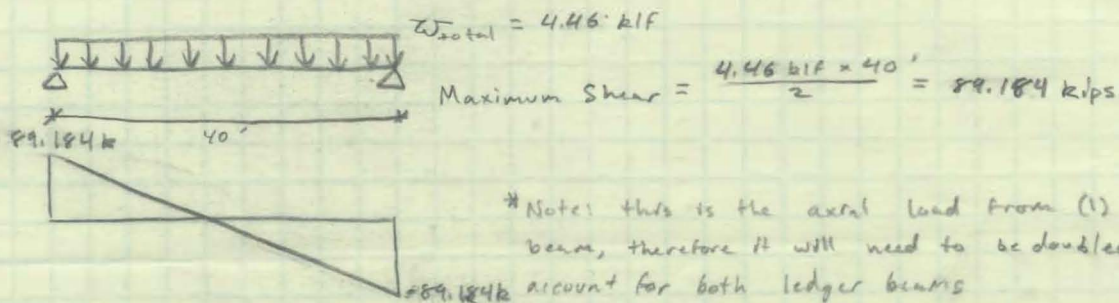 w total = 4.46 klf
Maximum Shear = 4.46 klf × 40' / 2 = 89.184 kips
40'
89.184k
*Note: this is the axial load from (1)
beam, therefore it will need to be doubled
-89.184k account for both ledger beams